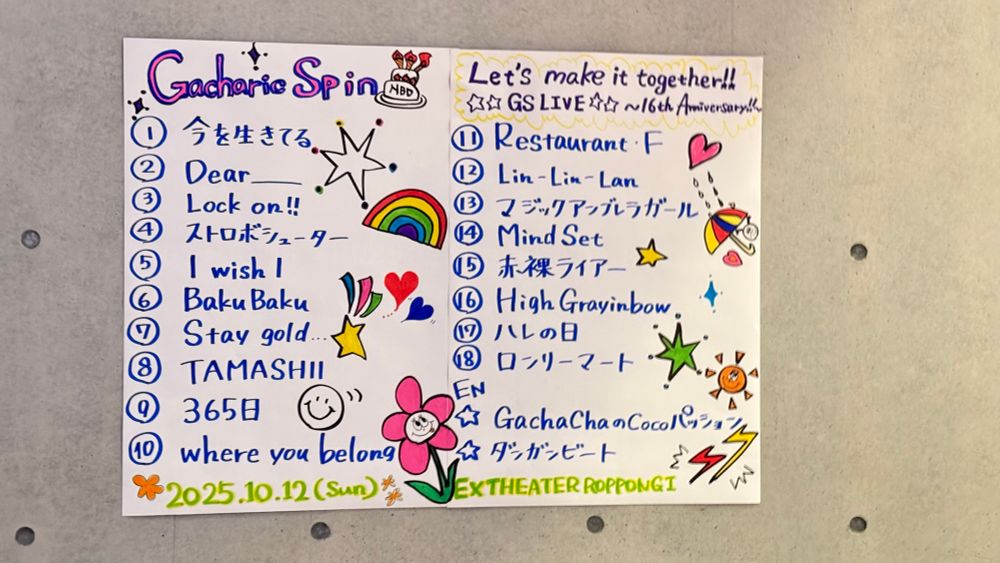 Gacharic Spin
HBD
① 今を生きてる
② Dear___
③ Lock on!!
④ ストロボシューター
⑤ I wish I
⑥ BakuBaku
⑦ Stay gold...
⑧ TAMASHII
⑨ 365日
⑩ where you belong
2025.10.12(Sun)
Let's make it together!!
☆☆ GS LIVE ☆☆ ~16th Anniversary!!~
⑪ Restaurant・F
⑫ Lin-Lin-Lan
⑬ マジックアンブレラガール
⑭ Mind Set
⑮ 赤裸ライアー
⑯ High Grayinbow
⑰ ハレの日
⑱ ロンリーマート
EN
☆ GachaChaのCocoパッション
☆ ダンガンビート
EXTHEATER ROPPONGI